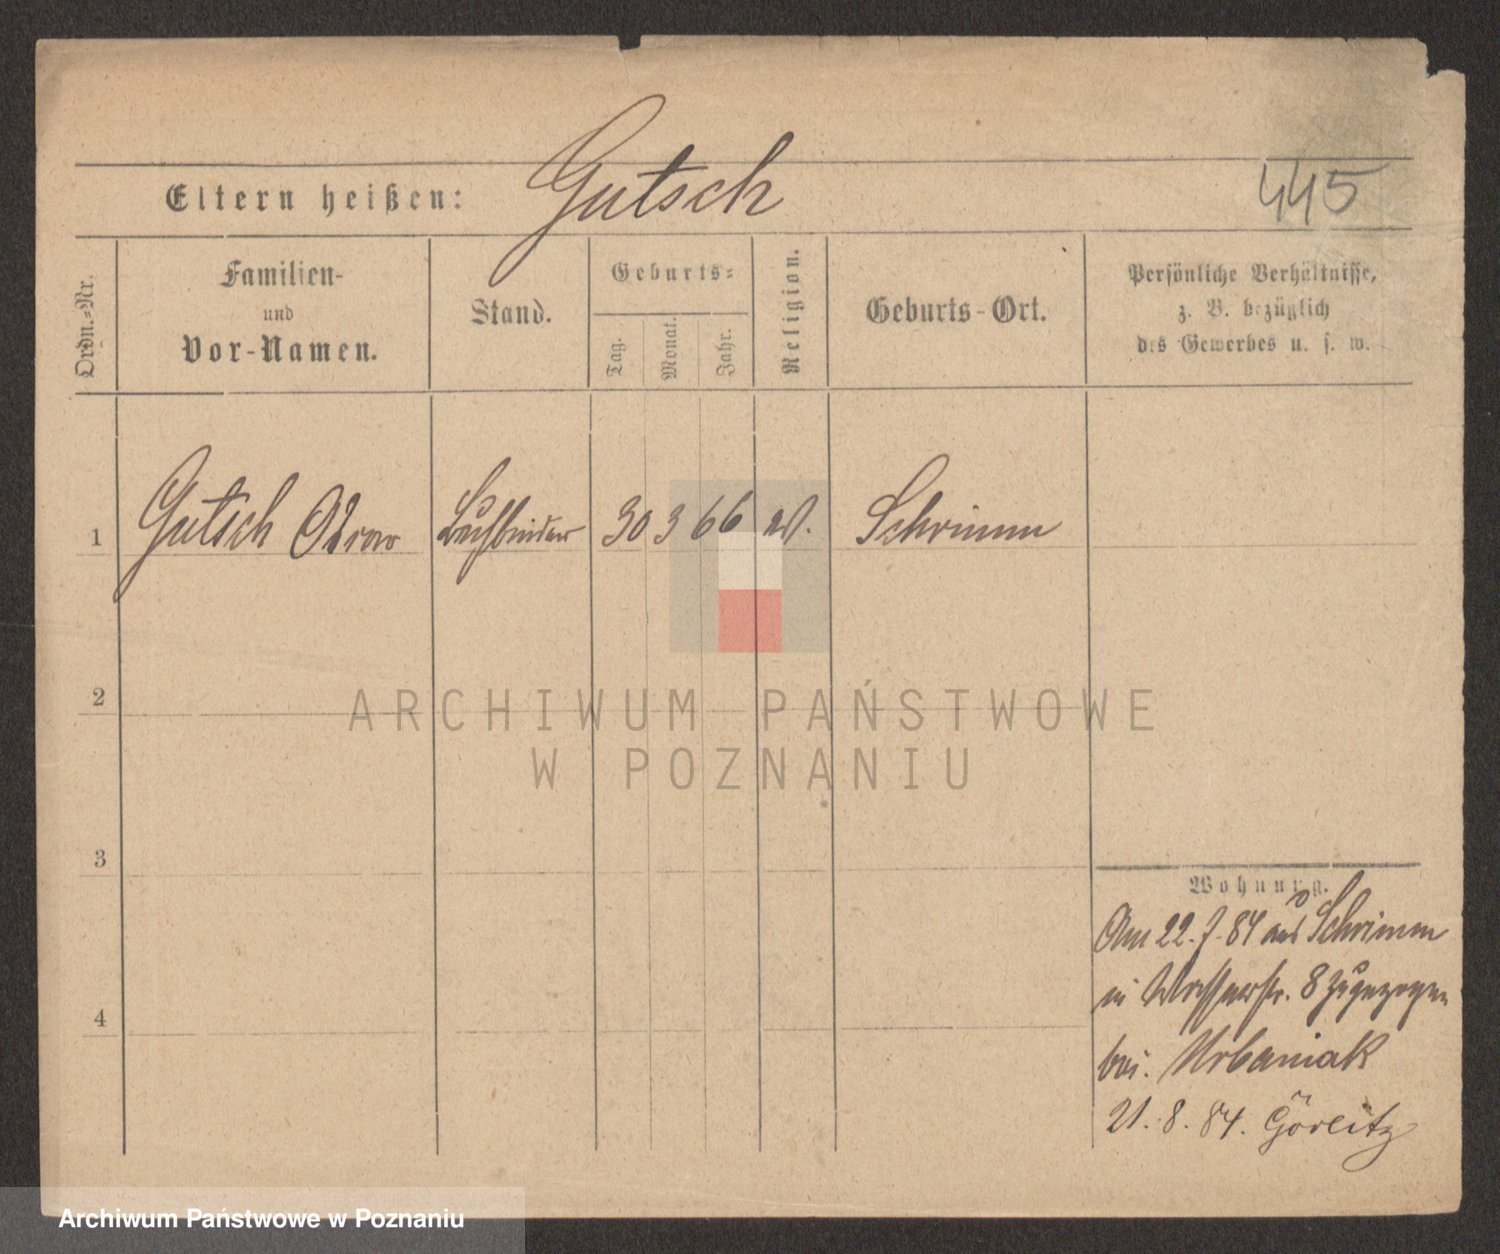 Eltern heißen: Gutsch
445
Ordn.-Nr.
Familien-
und
Vor-Namen.
Stand.
Geburts-
Tag.
Monat.
Jahr.
Religion.
Geburts-Ort.
Persönliche Verhältnisse,
z. B. bezüglich
des Gewerbes u. s. w.
1 Gutsch Buchbinder 30 3 66 Schrimm
2
3
4
Wohnung.
Am 22. 7. 84 aus Schrimm
in Wasserstr. 8 zugezogen
bei. Urbaniak
21. 8. 84. Görlitz
ARCHIWUM PAŃSTWOWE
W POZNANIU
Archiwum Państwowe w Poznaniu